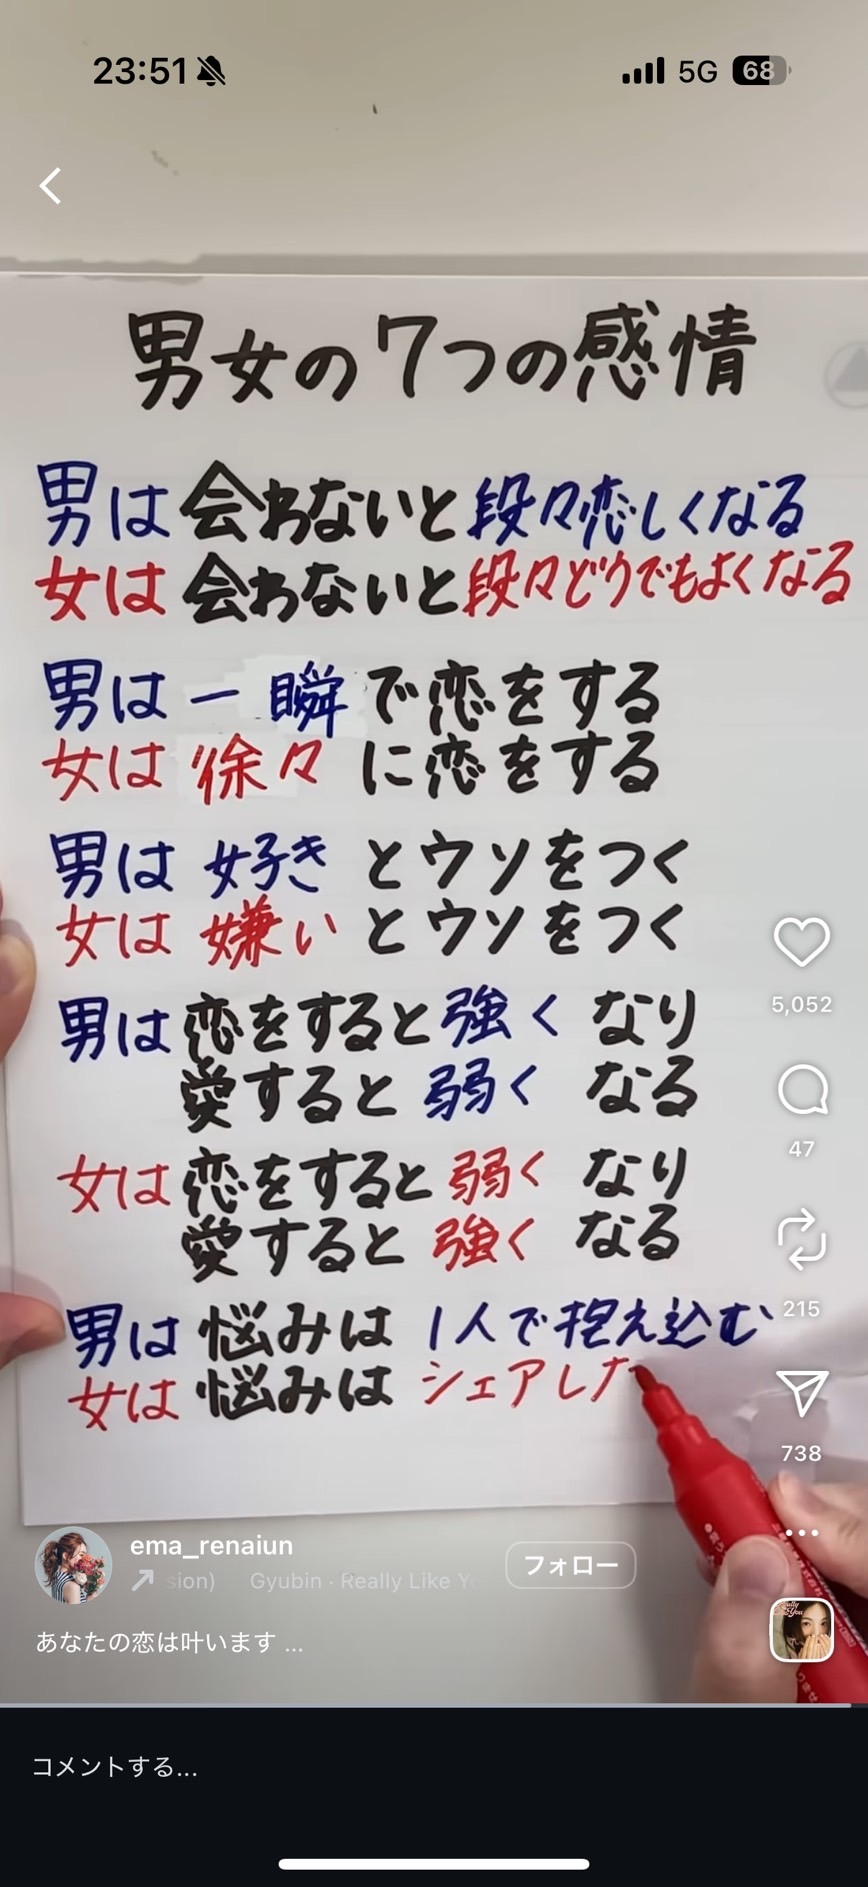 23:51
5G 68
男女の7つの感情
男は 会わないと段々恋しくなる
女は 会わないと段々どうでもよくなる
男は 一瞬 で恋をする
女は 徐々 に恋をする
男は 好き とウソをつく
女は 嫌い とウソをつく
男は 恋をすると強く なり
愛すると 弱く なる
女は 恋をすると 弱く なり
愛すると 強く なる
男は 悩みは 1人で抱え込む
女は 悩みは シェアした
5,052
47
215
738
ema_renaiun
sion) Gyubin · Really Like Yo
フォロー
あなたの恋は叶います ...
コメントする...